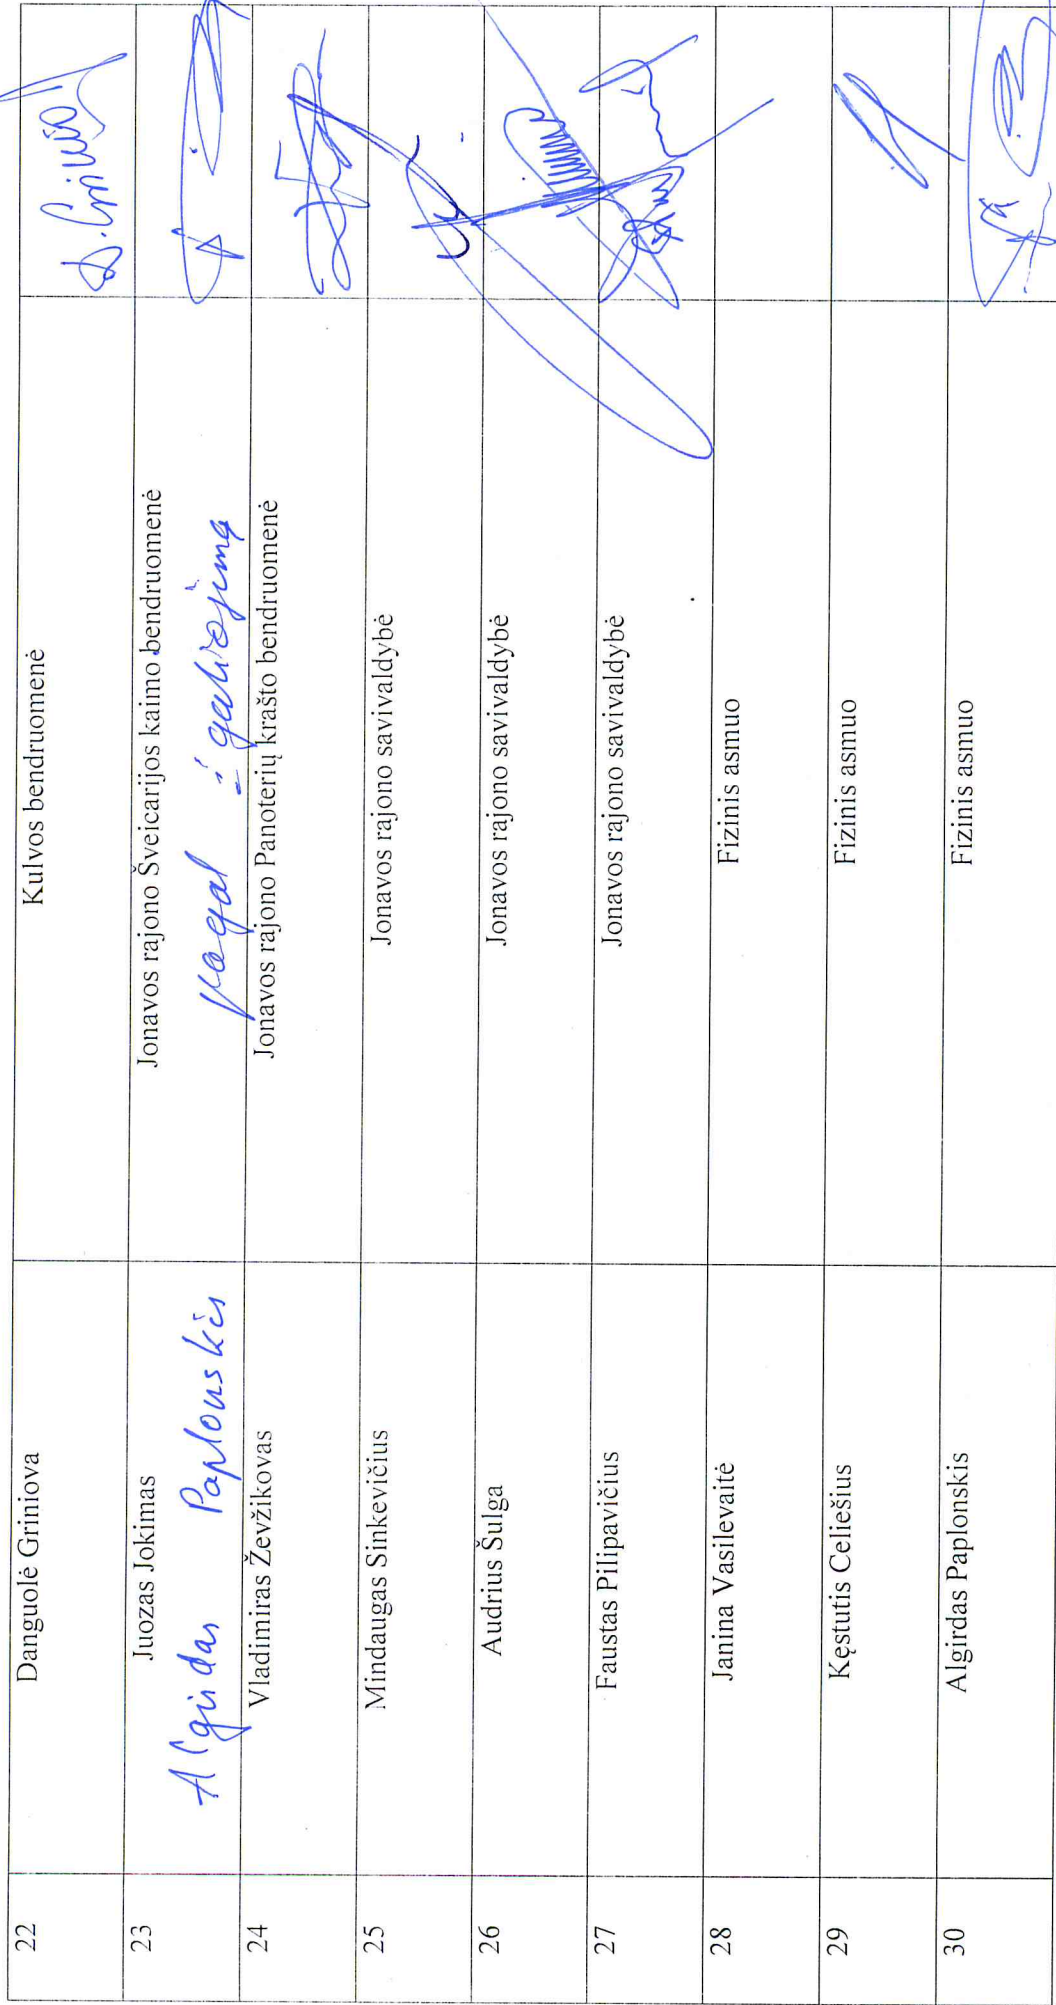 22 Danguolė Griniova Kulvos bendruomenė D. Griniova
23 Juozas Jokimas Jonavos rajono Šveicarijos kaimo bendruomenė
Algirdas Paplonskis pagal įgaliojimą
24 Vladimiras Ževžikovas Jonavos rajono Panoterių krašto bendruomenė
25 Mindaugas Sinkevičius Jonavos rajono savivaldybė
26 Audrius Šulga Jonavos rajono savivaldybė
27 Faustas Pilipavičius Jonavos rajono savivaldybė
28 Janina Vasilevaitė Fizinis asmuo
29 Kęstutis Celiešius Fizinis asmuo
30 Algirdas Paplonskis Fizinis asmuo